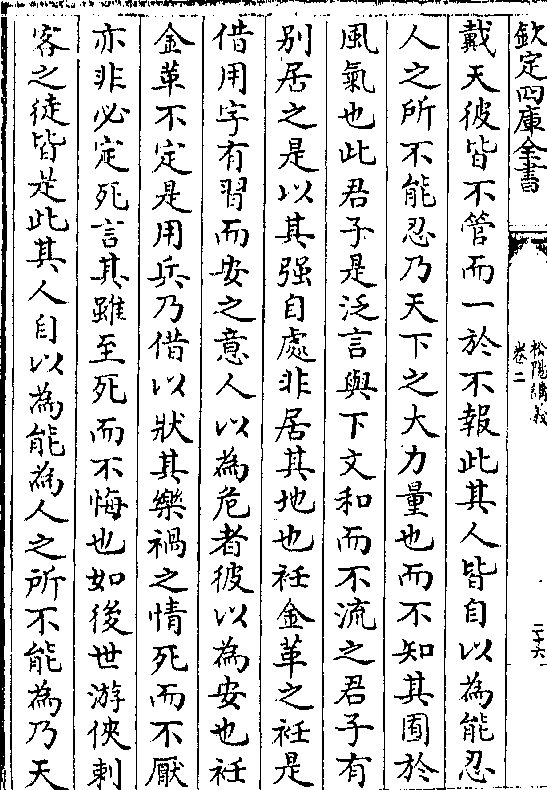 欽定四庫全書
松陽講義
卷二
二十六
戴天彼皆不管而一於不報此其人皆自以為能忍
人之所不能忍乃天下之大力量也而不知其囿於
風氣也此君子是泛言與下文和而不流之君子有
别居之是以其强自處非居其地也衽金革之衽是
借用字有習而安之意人以為危者彼以為安也衽
金革不定是用兵乃借以狀其樂禍之情死而不厭
亦非必定死言其雖至死而不悔也如後世游俠刺
客之徒皆是此其人自以為能為人之所不能為乃天